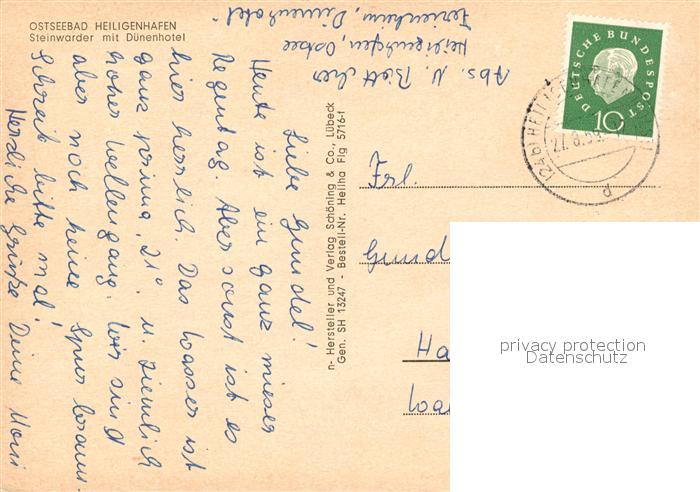 OSTSEEBAD HEILIGENHAFEN
Steinwarder mit Dünenhotel
Abs. N.
Heiligenhafen, Ostsee
Ferienheim, Dünenhotel
Liebe Gundel!
Heute ist ein ganz mieser
Regentag. Aber sonst ist es
hier herrlich. Das Wasser ist
ganz prima, 21°. u. ziemlich
hoher Wellengang. Wir sind
aber noch keine Spur braun.
Schreib bitte mal!
Herzliche Grüße Deine
n- Hersteller und Verlag Schöning & Co., Lübeck
Gen. SH 13247 - Bestell-Nr. Heilha Flg 5716-1
DEUTSCHE BUNDESPOST
10
(24b) HEILIGENHAFEN
27.8.59
a
Frl.
Gund
Ha
privacy protection
Datenschutz